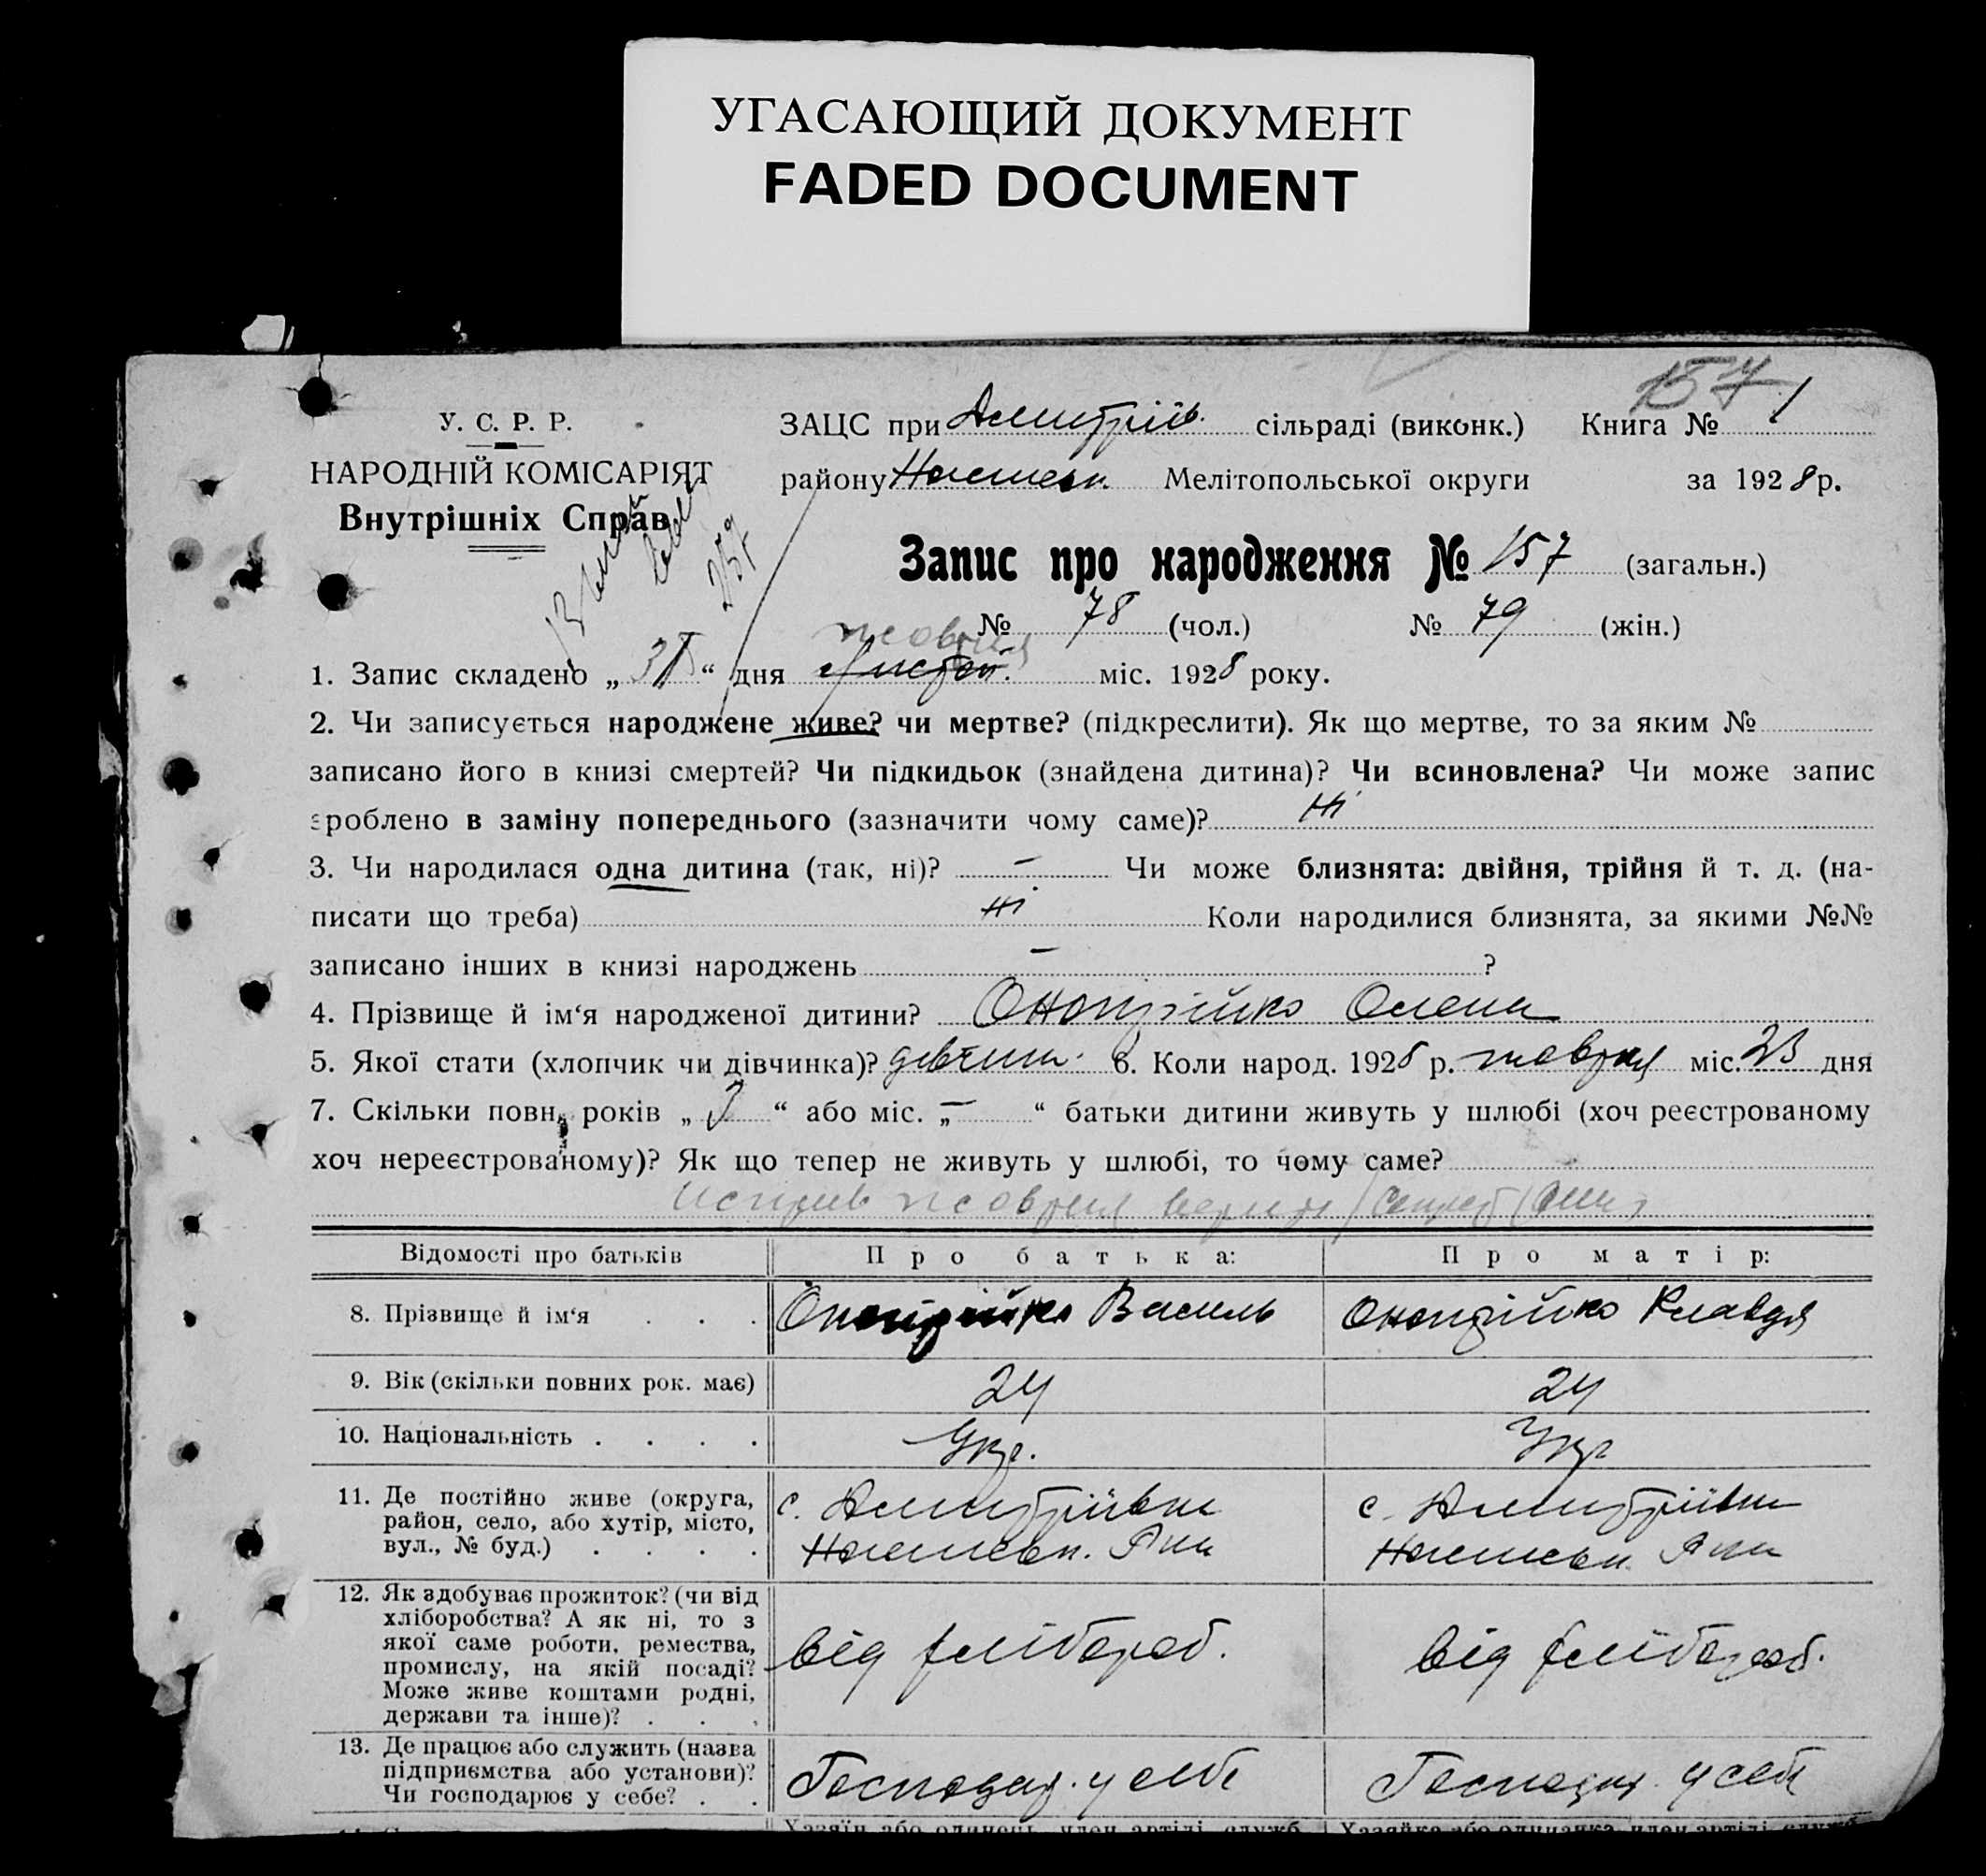 УГАСАЮЩИЙ ДОКУМЕНТ
FADED DOCUMENT
157
У. С. Р. Р.
НАРОДНІЙ КОМІСАРІЯТ
Внутрішніх Справ
ЗАЦС при Дмитрів. сільраді (виконк.) Книга № 1
району Мелітопольської округи за 1928 р.
Запис про народження № 157 (загальн.)
№ 78 (чол.) № 79 (жін.)
жовтня
1. Запис складено „ 31 “ дня Листоп. міс. 1928 року.
2. Чи записується народжене живе? чи мертве? (підкреслити). Як що мертве, то за яким №
записано його в книзі смертей? Чи підкидьок (знайдена дитина)? Чи всиновлена? Чи може запис
зроблено в заміну попереднього (зазначити чому саме)? Ні
3. Чи народилася одна дитина (так, ні)? — Чи може близнята: двійня, трійня й т. д. (на-
писати що треба) Ні Коли народилися близнята, за якими №№
записано інших в книзі народжень — ?
4. Прізвище й ім‘я народженої дитини? Онопрійко Олена
5. Якої стати (хлопчик чи дівчинка)? дівчин. 6. Коли народ. 1928 р. жовтня міс. 23 дня
7. Скільки повн. років „ 3 “ або міс. „ — “ батьки дитини живуть у шлюбі (хоч реєстрованому
хоч нереєстрованому)? Як що тепер не живуть у шлюбі, то чому саме?
жовтня
Відомості про батьків Про батька: Про матір:
8. Прізвище й ім‘я . . . Онопрійко Василь Онопрійко Клавдя
9. Вік (скільки повних рок. має) 24 24
10. Національність . . . . Укр. Укр
11. Де постійно живе (округа, с. Дмитріївка с. Дмитріївка
район, село, або хутір, місто,
вул., № буд.) . . . .
12. Як здобуває прожиток? (чи від
хліборобства? А як ні, то з
якої саме роботи, ремества, від хлібороб. від хлібороб.
промислу, на якій посаді?
Може живе коштами родні,
держави та інше)? . . .
13. Де працює або служить (назва
підприємства або установи)? Господар. у себе Господар. у себе
Чи господарює у себе? . .
Хазяїн або одинець, член артілі, служб. Хазяйка або одиначка, член артілі, служб.